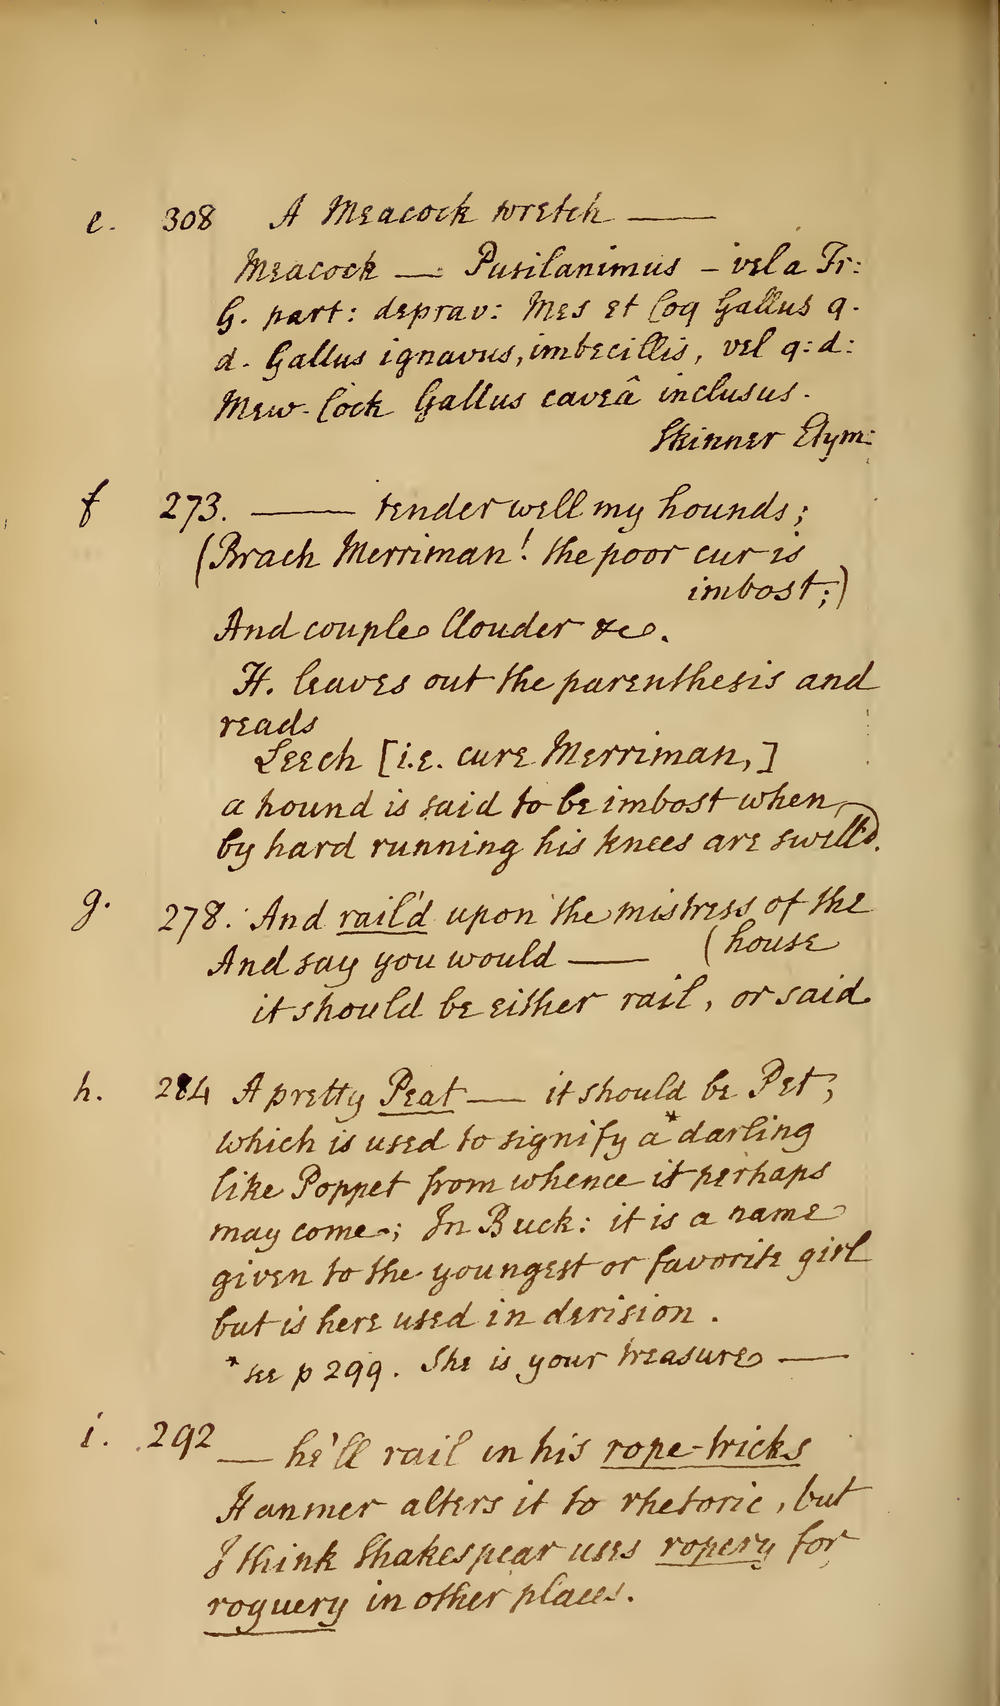 e. 308 A Meacock wretch ——
Meacock — Pusilanimus – vel a Fr:
G. part: deprav: Mes et Coq Gallus q.
d. Gallus ignavus, imbecillis, vel q: d:
Mew-Cock Gallus caveâ inclusus.
Skinner Etym:
f 273. —— tender well my hounds;
(Brach Merriman! the poor cur is
imbost;)
And couple Clouder &c.
H. leaves out the parenthesis and
reads
Leech [i.e. cure Merriman,]
a hound is said to be imbost when
by hard running his knees are swell'd.
g. 278. And rail'd upon the mistress of the
And say you would —— (house
it should be either rail, or said
h. 284 A pretty Peat — it should be Pet,
which is used to signify a * darling
like Poppet from whence it perhaps
may come; In Buck: it is a name
given to the youngest or favorite girl
but is here used in derision.
* see p 299. She is your treasure ——
i. 292 — he'll rail in his rope-tricks
Hanmer alters it to rhetoric, but
I think Shakespear uses ropery for
roguery in other places.